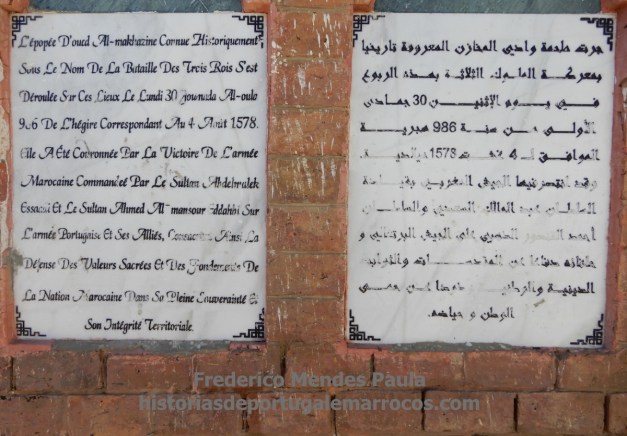 L'épopée D'oued Al-makhazine Connue Historiquement
Sous Le Nom De La Bataille Des Trois Rois S'est
Déroulée Sur Ces Lieux Le Lundi 30 Joumada Al-oula
986 De L'hégire Correspondant Au 4 Août 1578.
Elle A Été Couronnée Par La Victoire De L'armée
Marocaine Commandeé Par Le Sultan Abdelmalek
Essaadi Et Le Sultan Ahmed Al-mansour Eddahbi Sur
L'armée Portugaise Et Ses Alliés, Ainsi La
Défense Des Valeurs Sacrées Et Des Fondements De
La Nation Marocaine Dans Sa Pleine Souveraineté Et
Son Intégrité Territoriale.
جرت ملحمة وادي المخازن المعروفة تاريخيا
بمعركة الملوك الثلاثة بهذه الربوع
في يوم الإثنين 30 جمادى
الأولى من سنة 986 هجرية
الموافق لـ 4 غشت 1578 ميلادية.
وقد انتصر فيها الجيش المغربي بقيادة
السلطان عبد المالك السعدي والسلطان
أحمد المنصور الذهبي على الجيش البرتغالي و
حلفائه دفاعا عن المقدسات والثوابت
الدينية والوطنية وذودا عن حمى
الوطن و حياضه.
Frederico Mendes Paula
historiasdeportugalemarrocos.com